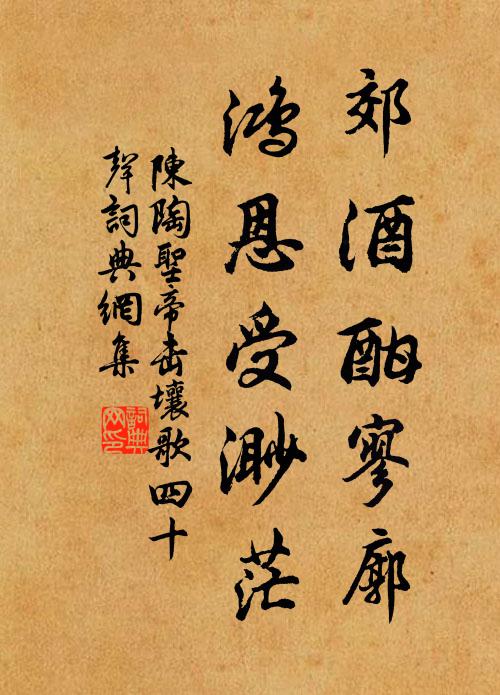 郊酒酣寥廓
鴻恩受渺茫
陳陶聖帝击壤歌四十
聲詞典網集